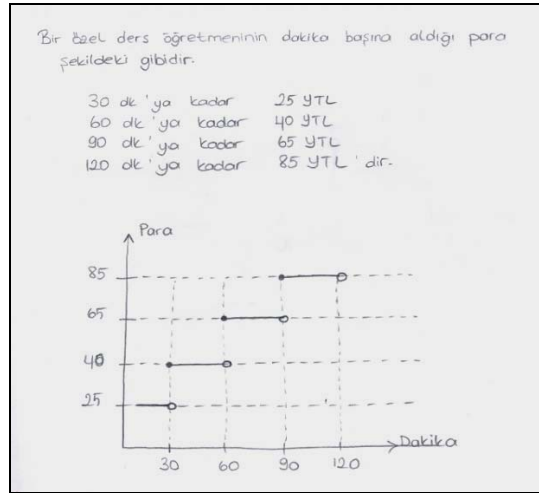 Bir özel ders öğretmeninin dakika başına aldığı para
şekildeki gibidir.
30 dk'ya kadar 25 YTL
60 dk'ya kadar 40 YTL
90 dk'ya kadar 65 YTL
120 dk'ya kadar 85 YTL'dir.
Para
85
65
40
25
30 60 90 120
Dakika